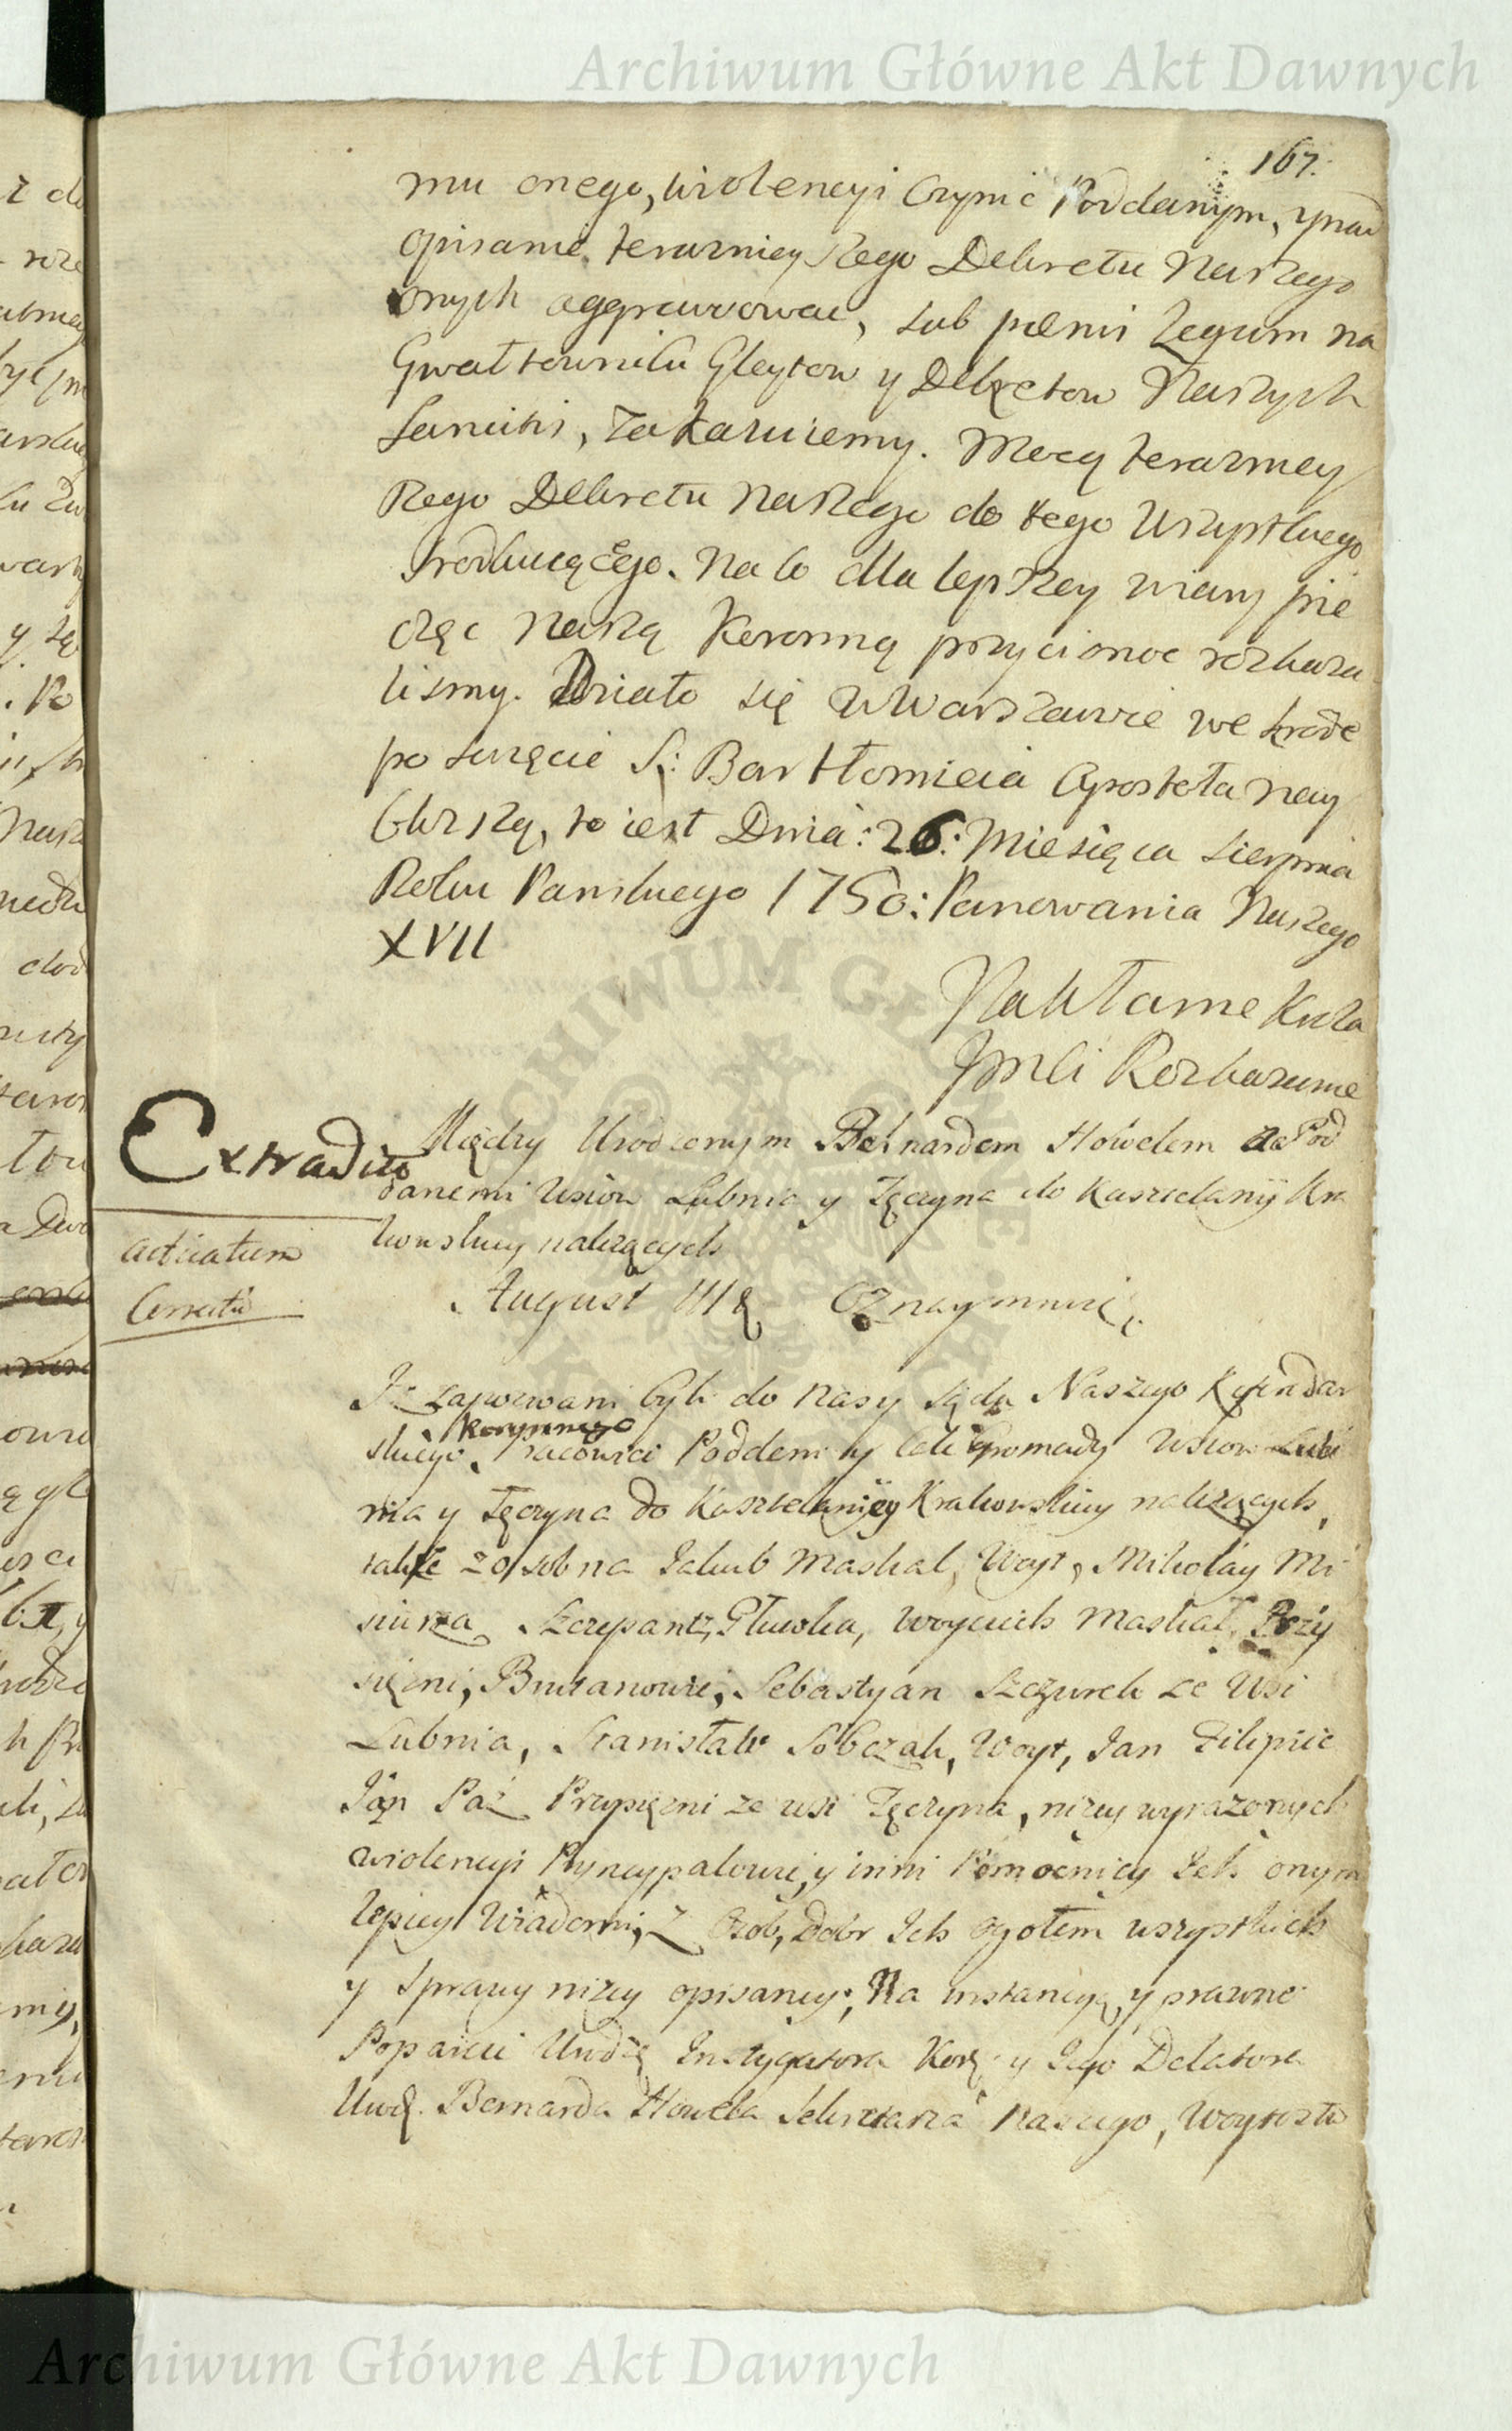 Archiwum Główne Akt Dawnych
167.
mu onego, wiolencyi czynić Poddanym, y nad
opisanie terazniey szego Dekretu Naszego
onych aggrawować, sub pænis Legum na
Gwałtowniku Gleytow y Dekretow Naszych
Sancitis, zakazuiemy. Mocą terazniey
szego Dekretu Naszego do tego wszystkiego
srodkuiącego. Na co dla lepszey wiary pie
częć Naszą Koronną przycisnąć rozkaza
lismy. Działo się w Warszawie we srodę
po swięcie S: Bartłomieia Apostoła nay
blizszą, to iest Dnia: 26: Miesiąca Sierpnia
Roku Panskiego 1750: Panowania Naszego
XVII
Na Własne Króla
Jmci Rozkazanie
Extradita
acticatum
Correcta
Między Urodzonym Bernardem Howelem a Pod
danemi wsiow Lubnia y Tęczyna do Kasztelanij Kra
kowskiey nalezących
August III Oznaymuię
Iż zapozwani byli do Nas y Sądu Naszego Referendar
skiego Koronnego Pracowici Poddani y całe Gromady wsiow Lub
nia y Tęczyna do Kasztelaniey Krakowskiey nalezących,
także zosobna Jakub Maskal, Woyt, Mikołay Mi
siura Szczepaniz, Głuwka, Woyciech Maskal, Przy
siężni, Burzanowie, Sebastyan Szczurek ze Wsi
Lubnia, Stanisław Sobczak, Woyt, Jan Filipiec
Jan Paź Przysiężni ze wsi Tęczyna, niżey wyrazonych
wiolencyi Pryncypałowie, y inni Pomocnicy Ich onym
lepiey Wiadomi, z Osob, Dobr Ich ogołem wszystkich
y Sprawy niżey opisaney, Na instancyą y prawne
Poparcie Urodz Instygatora Kor: y Jego Delatora
Urodz. Bernarda Howela Sekretarza Naszego, Woytostw
Archiwum Główne Akt Dawnych